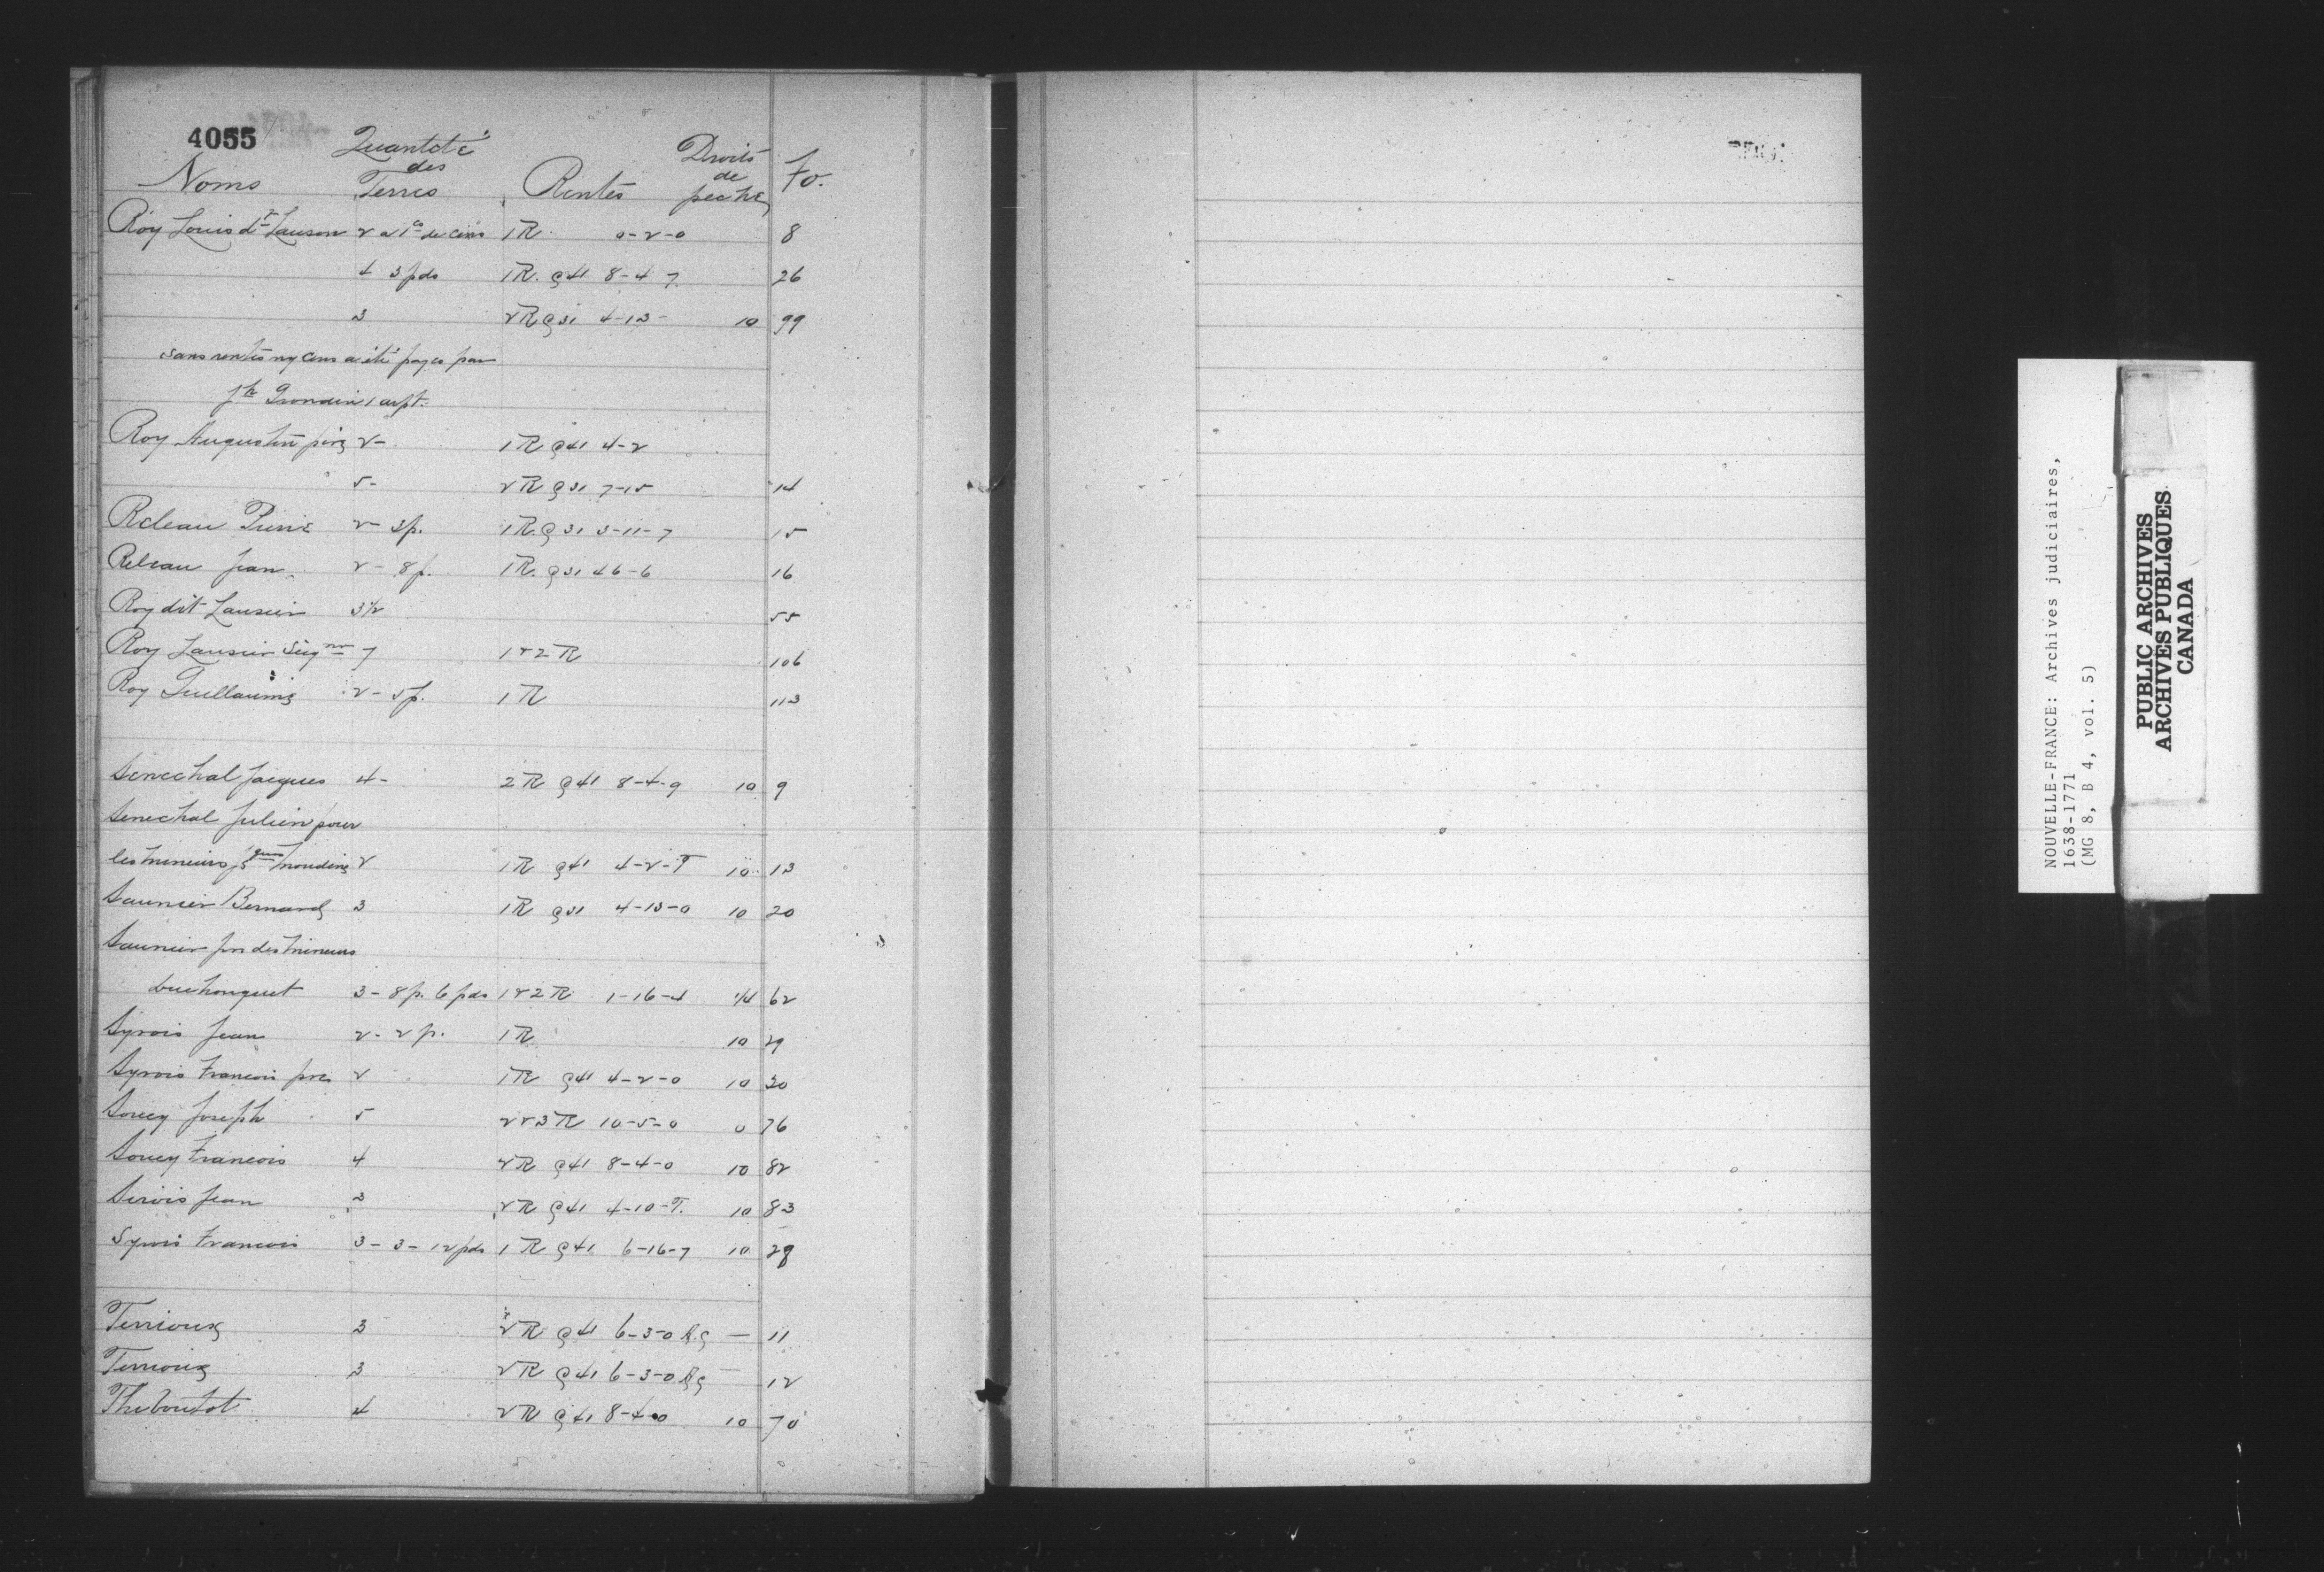 4055
Quantité des Terres
Droits de peche
Noms Rentes fo.
Roy Louis dt Lauson 2 a 1 co de cens 1R. 0-2-0 8
4 3 pds 1R. @41 8-4 7 26
3 2R @31 4-13- 10 99
sans rentes ny cens a été payes par
Jh Grondin 1 arpt.
Roy Augustin père 2- 1R @41 4-2
5- 2R @31 7-15 14
Releau Pierre 2- 3p. 1R. @31 3-11-7 15
Releau Jean 2- 8p. 1R. @31 46-6 16
Roy dit Lausier 3½ 55
Roy Lausier Seignr 7 1&2R 106
Roy Guillaume 2-5p. 1R 113
Senechal Jacques 4- 2R @41 8-4-9 10 9
Senechal Julien pour
les mineurs 2 1R @41 4-2-T 10 13
Saunier Bernard 3 1R @31 4-13-0 10 20
Saunier pr des mineurs
Duchouquet 3-8p. 6pds 1&2R 1-16-4 1/4 62
Syrois Jean 2-2p. 1R 10 29
Syrois Francois pere 2 1R @41 4-2-0 10 30
Soucy Joseph 5 2&3R 10-5-0 0 76
Soucy Francois 4 2R @41 8-4-0 10 82
Sirois Jean 3 2R @41 4-10-T. 10 83
Syrois Francois 3-3-12pds 1R @41 6-16-7 10 28
Terrioux 3 2R @41 6-3-0 — 11
Terrioux 3 2R @41 6-3-0 — 12
Theboutot 4 2R @41 8-4-0 10 70
NOUVELLE-FRANCE: Archives judiciaires,
1638-1771
(MG 8, B 4, vol. 5)
PUBLIC ARCHIVES
ARCHIVES PUBLIQUES
CANADA